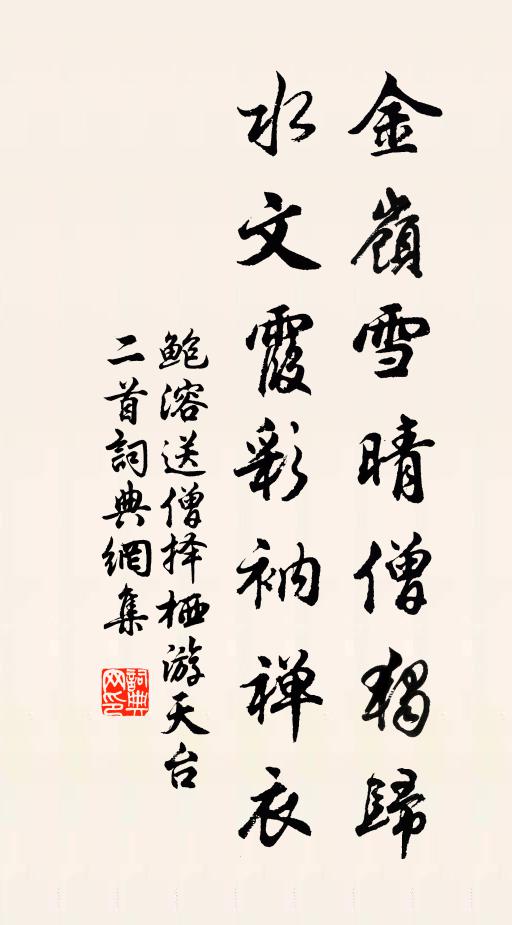 金嶺雪晴僧獨歸
水文霞彩衲禅衣
鲍溶送僧择栖游天台
二首詞典網集
詞典網印